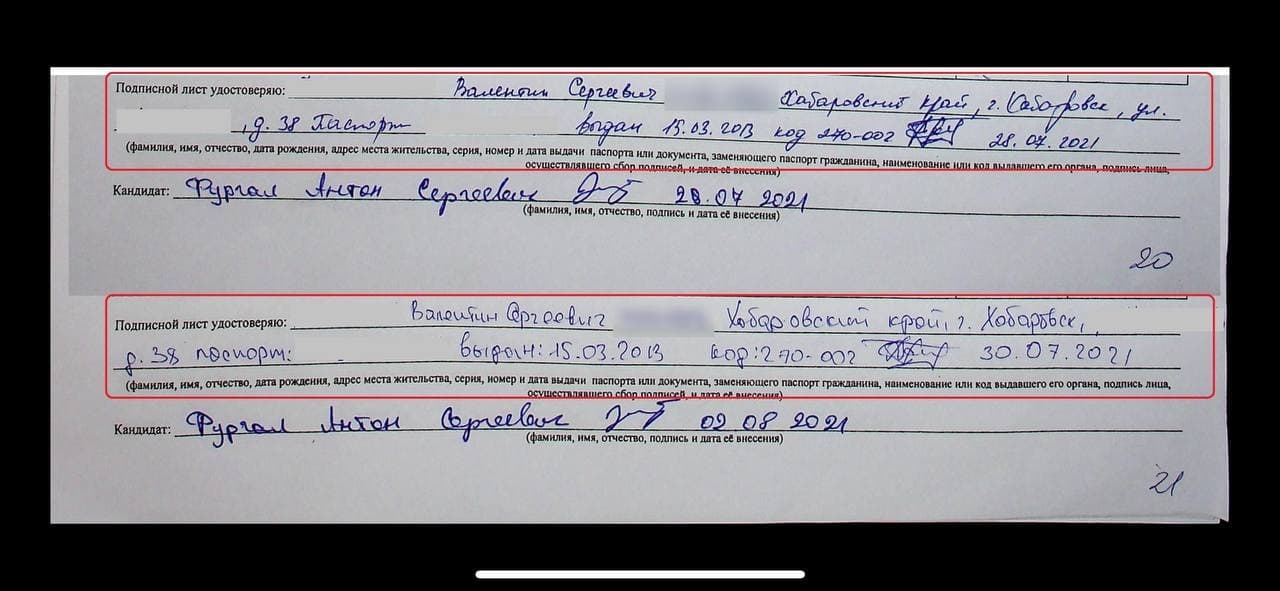 Подписной лист удостоверяю: Валентин Сергеевич Хабаровский край, г. Хабаровск, ул.
, д. 38 Паспорт выдан 15.03.2013 код 270-002 28.07.2021
(фамилия, имя, отчество, дата рождения, адрес места жительства, серия, номер и дата выдачи паспорта или документа, заменяющего паспорт гражданина, наименование или код выдавшего его органа, подпись лица,
осуществлявшего сбор подписей, и дата её внесения)
Кандидат: Фургал Антон Сергеевич 28.07 2021
(фамилия, имя, отчество, подпись и дата её внесения)
20
Подписной лист удостоверяю: Валентин Сргеевич Хабаровский край, г. Хабаровск,
д. 38 паспорт: выдан: 15.03.2013 код: 270-002 30.07.2021
(фамилия, имя, отчество, дата рождения, адрес места жительства, серия, номер и дата выдачи паспорта или документа, заменяющего паспорт гражданина, наименование или код выдавшего его органа, подпись лица,
осуществлявшего сбор подписей, и дата её внесения)
Кандидат: Фургал Антон Сергеевич 02 08 2021
(фамилия, имя, отчество, подпись и дата её внесения)
21